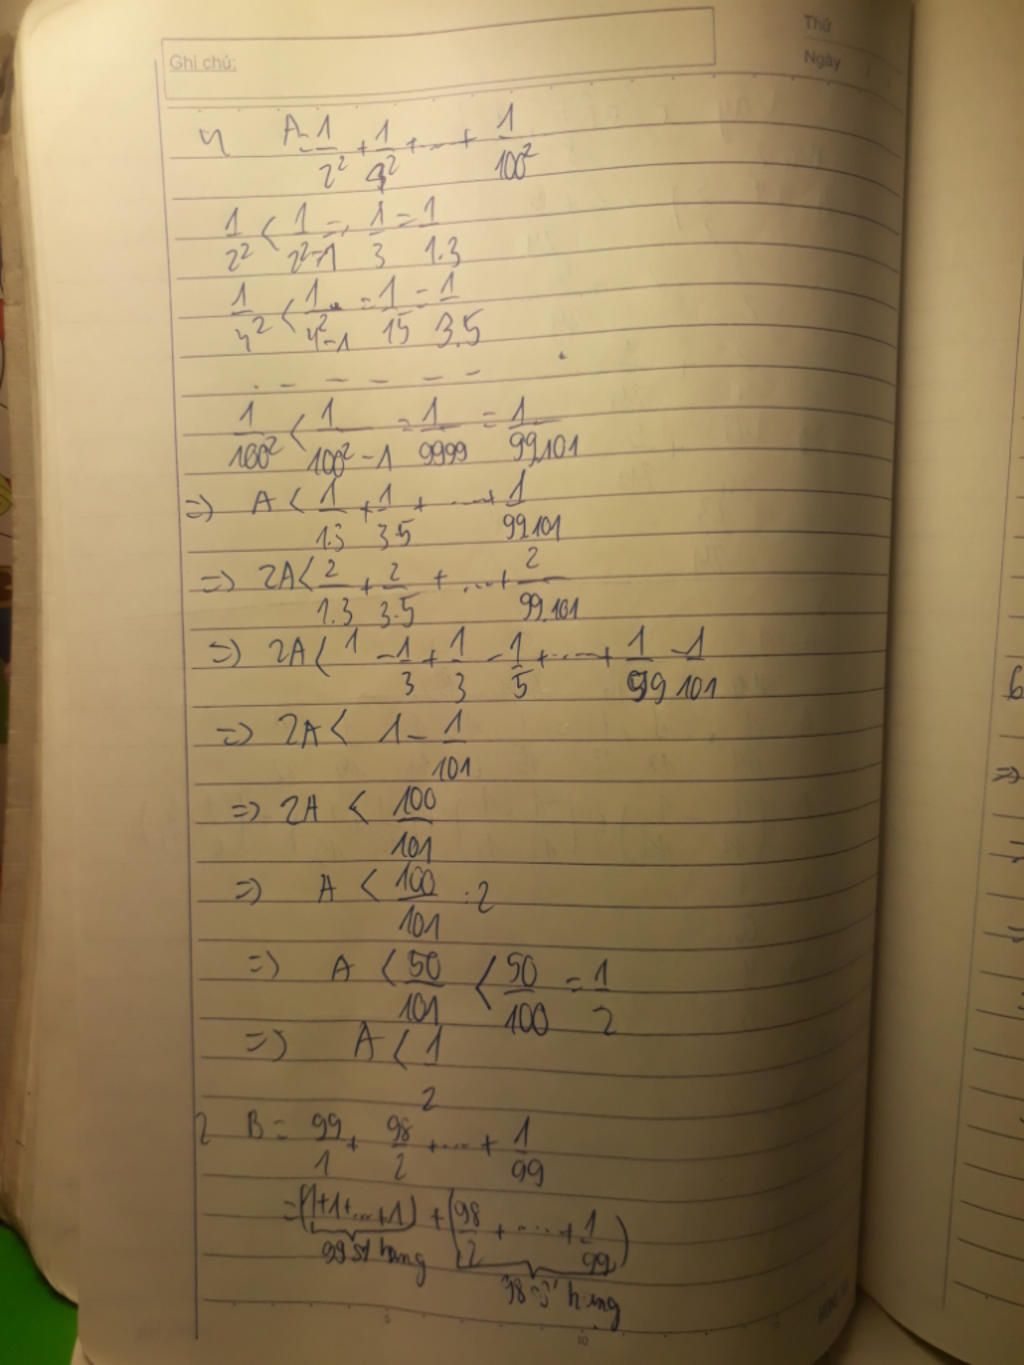 Thứ
Ghi chú:
Ngày
4 A = 1/2² + 1/4² + ... + 1/100²
1/2² < 1/2²-1 = 1/3 = 1/1.3
1/4² < 1/4²-1 = 1/15 = 1/3.5
. - - - - -
1/100² < 1/100²-1 = 1/9999 = 1/99.101
=> A < 1/1.3 + 1/3.5 + ... + 1/99.101
=> 2A < 2/1.3 + 2/3.5 + ... + 2/99.101
=> 2A < 1 - 1/3 + 1/3 - 1/5 + ... + 1/99 - 1/101
=> 2A < 1 - 1/101
=> 2A < 100/101
=> A < 100/101 : 2
=> A < 50/101 < 50/100 = 1/2
=> A < 1/2
2 B = 99/1 + 98/2 + ... + 1/99
= (1+1+...+1) + (98/2 + ... + 1/99)
99 số hạng
98 số hạng
5
10
6
=>